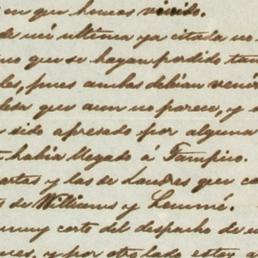 en que hemos vivido.
de mi ultima ya citada no
no que se hayan perdido tam
les, pues ambas debian venir
leta que aun no parece, y
sido apresado por alguna
habia llegado á Tampico.
cartas y las de Londres que
de Williams y Lemmé.
muy corto del despacho de
y por otro lado estoy